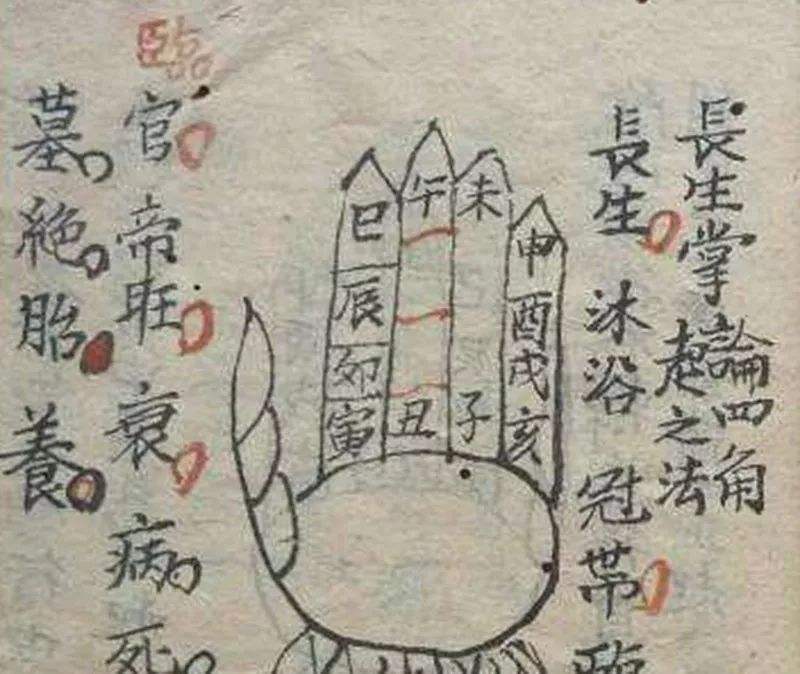 長生掌論四角
起之法
長生 沐浴 冠帯 臨
臨
官 帝旺 衰 病 死
墓 絶 胎 養
巳 午 未 申
辰 酉
卯 戌
寅 丑 子 亥